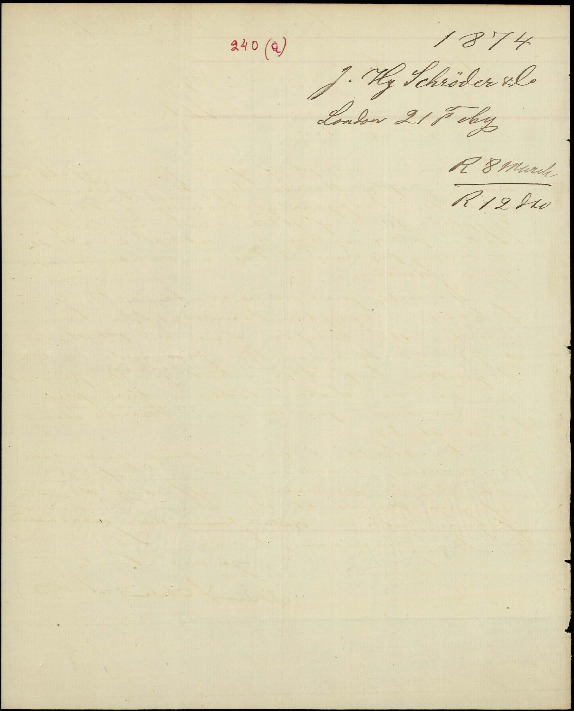 240 (a)
1874
J. Hy Schröder & Co
London 21 Feby
R 8 March
R 12 do